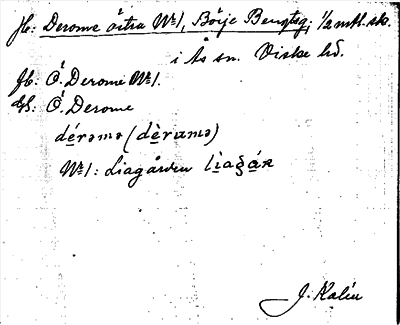 Jb: Derome östra No 1, Börje Bengtsg; 1/2 mtl. sk.
i Ås sn. Viske hd.
Jb: Ö. Derome No 1.
Ö. Derome
dérəmə (dèrumə)
No 1: Liagården
J. Kalén